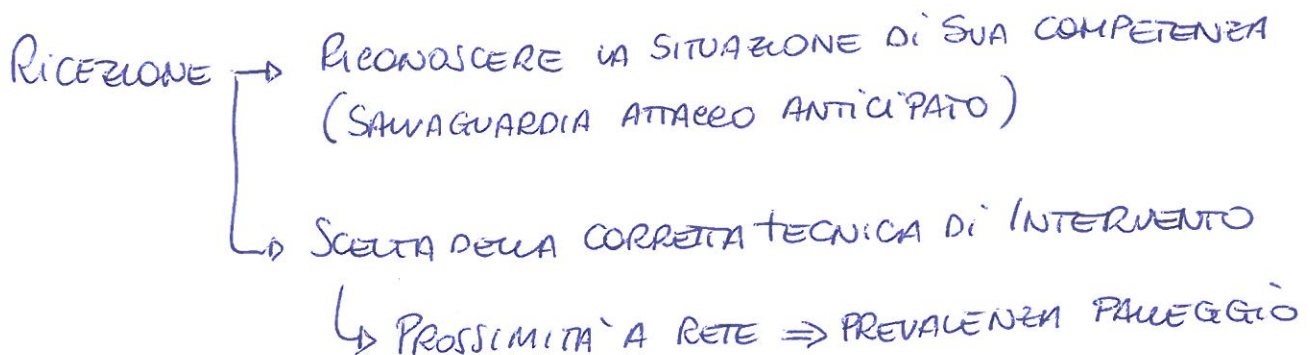 RICEZIONE → RICONOSCERE LA SITUAZIONE Di SUA COMPETENZA
(SALVAGUARDIA ATTACCO ANTICIPATO)
↳ SCELTA DELLA CORRETTA TECNICA Di INTERVENTO
↳ PROSSIMITA' A RETE ⇒ PREVALENZA PALLEGGIO